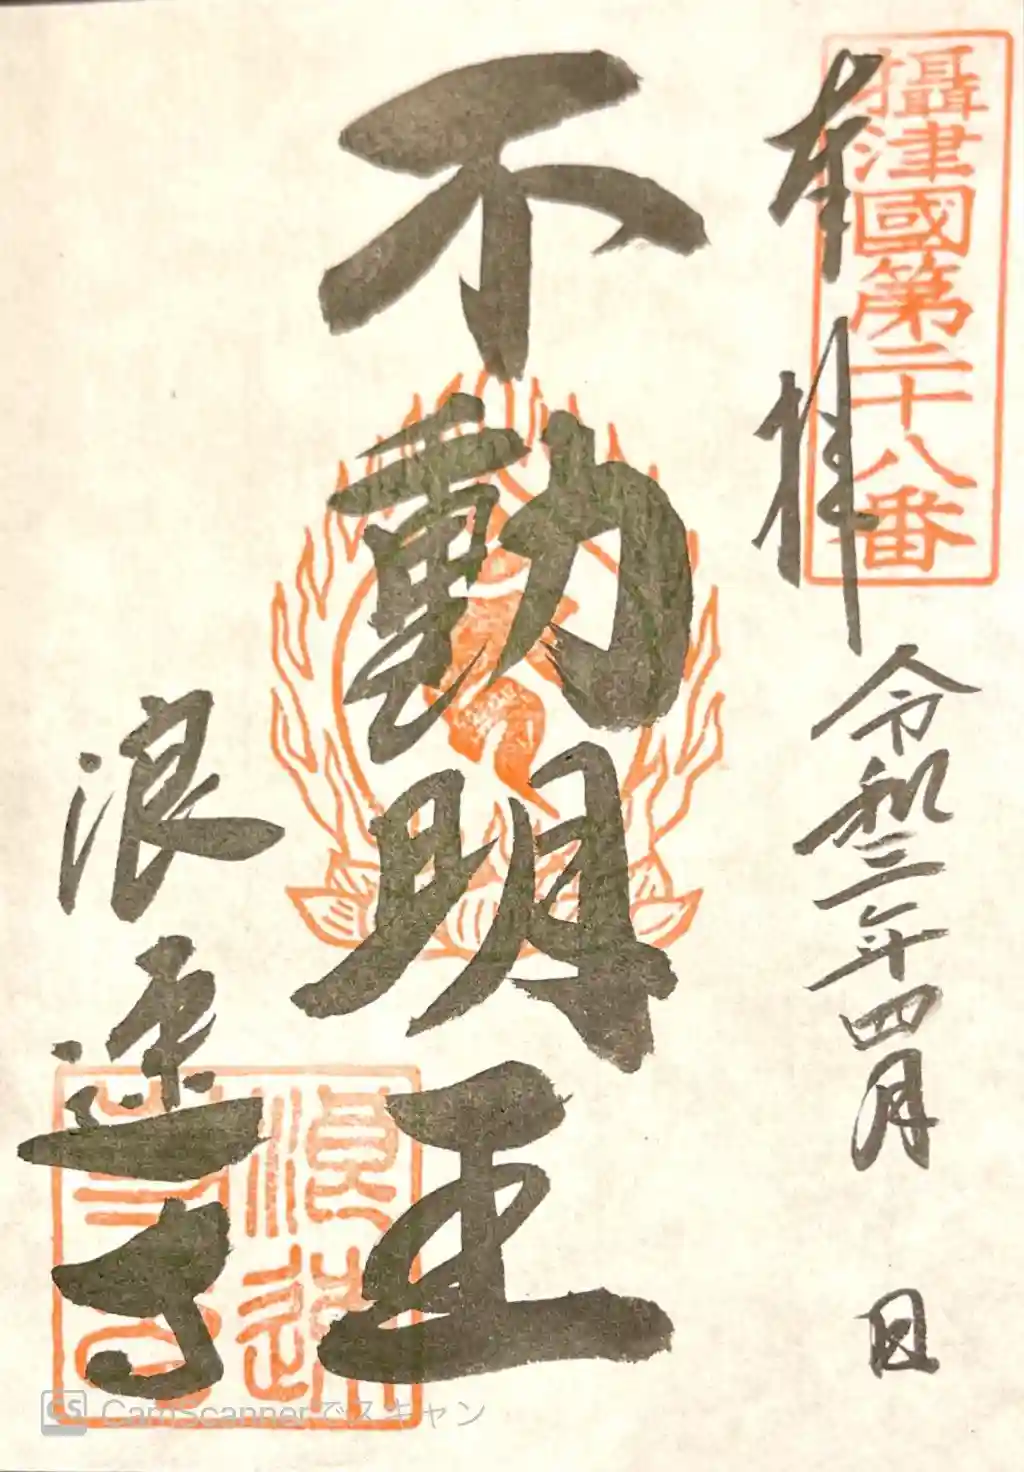 攝津國第二十八番
奉拝
令和三年四月 日
不動明王
浪速寺
CS CamScannerでスキャン